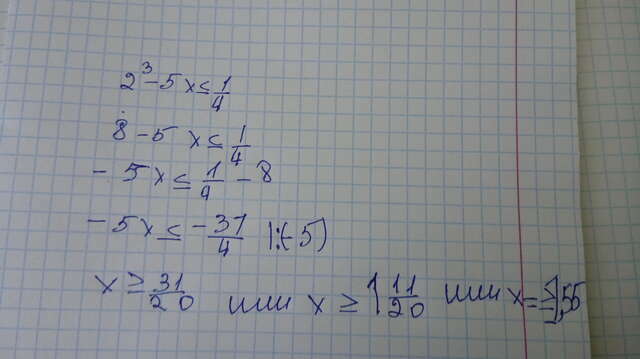 2³-5x≤1/4
8-5x≤1/4
-5x≤1/4-8
-5x≤-31/4 |:(-5)
x≥31/20 или x≥1 11/20 или x=1,55